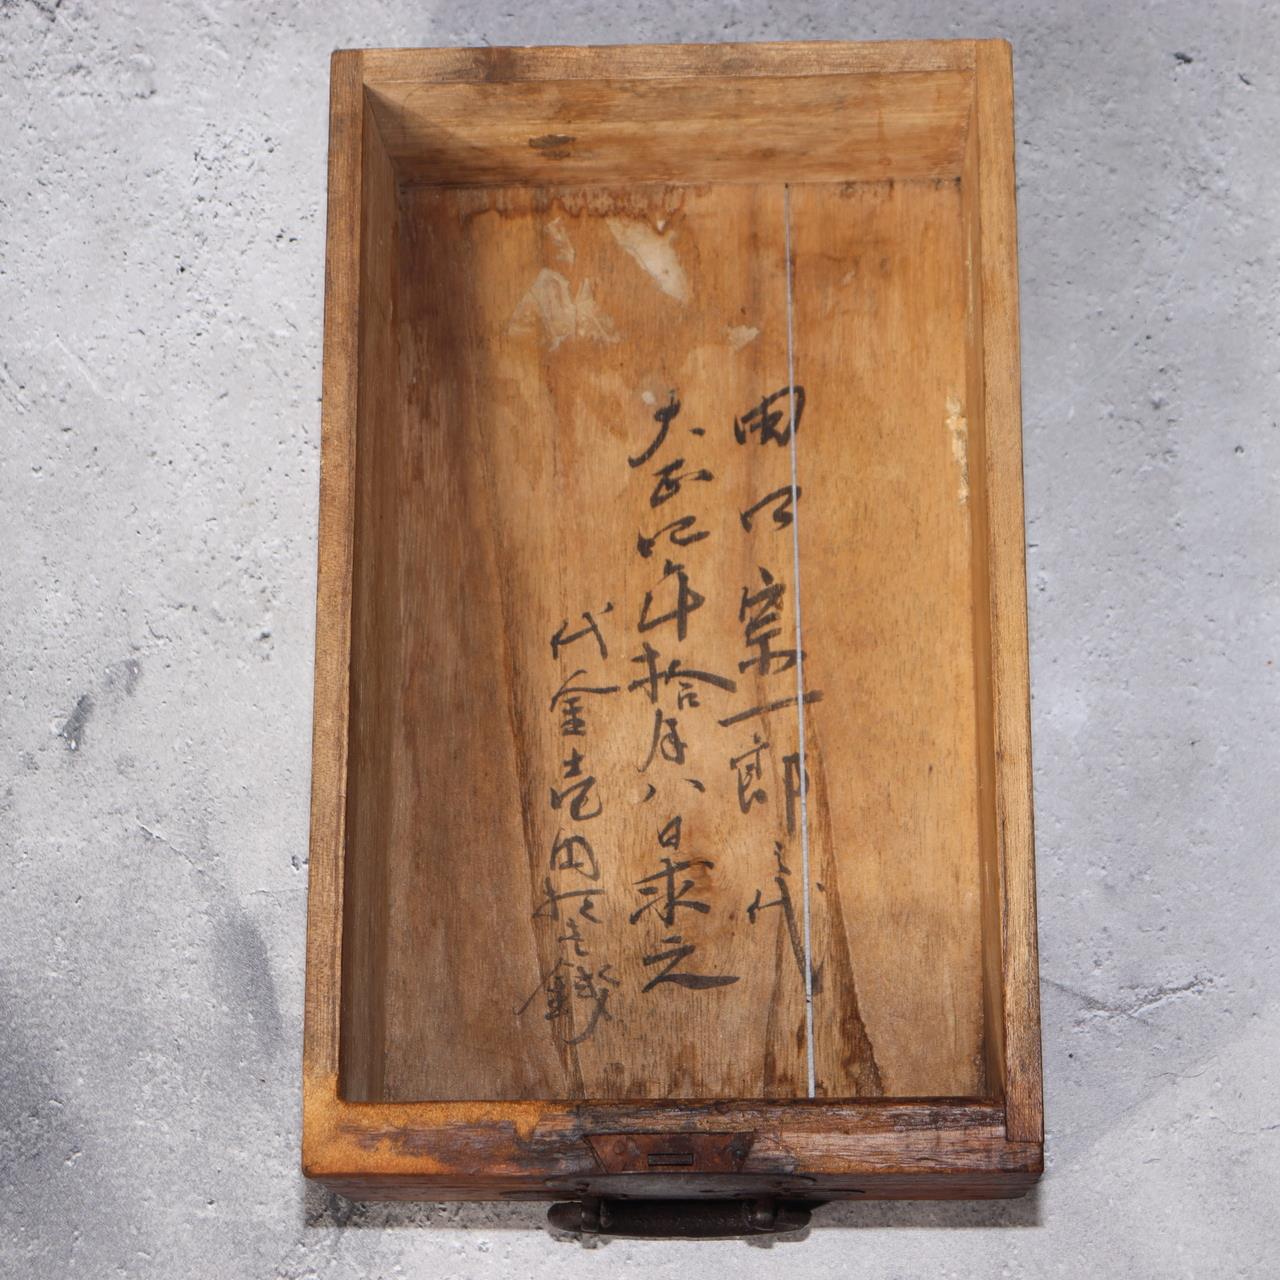 田口宗一郎代
大正四年拾月八日求之
代金壱円拾壱銭